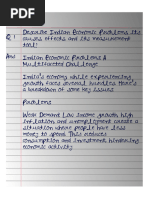 Q.1 Describe Indian Economic Problems its
causes effects and its measurement
tool?
Ans Indian Economic Problems A
Multifaceted Challenge
India's economy while experiencing
growth faces several hurdles. Here's
a breakdown of some key issues
Problems
Weak Demand Low income growth, high
inflation and unemployment create a
situation where people have less
money to spend. This reduces
consumption and investment hindering
economic activity